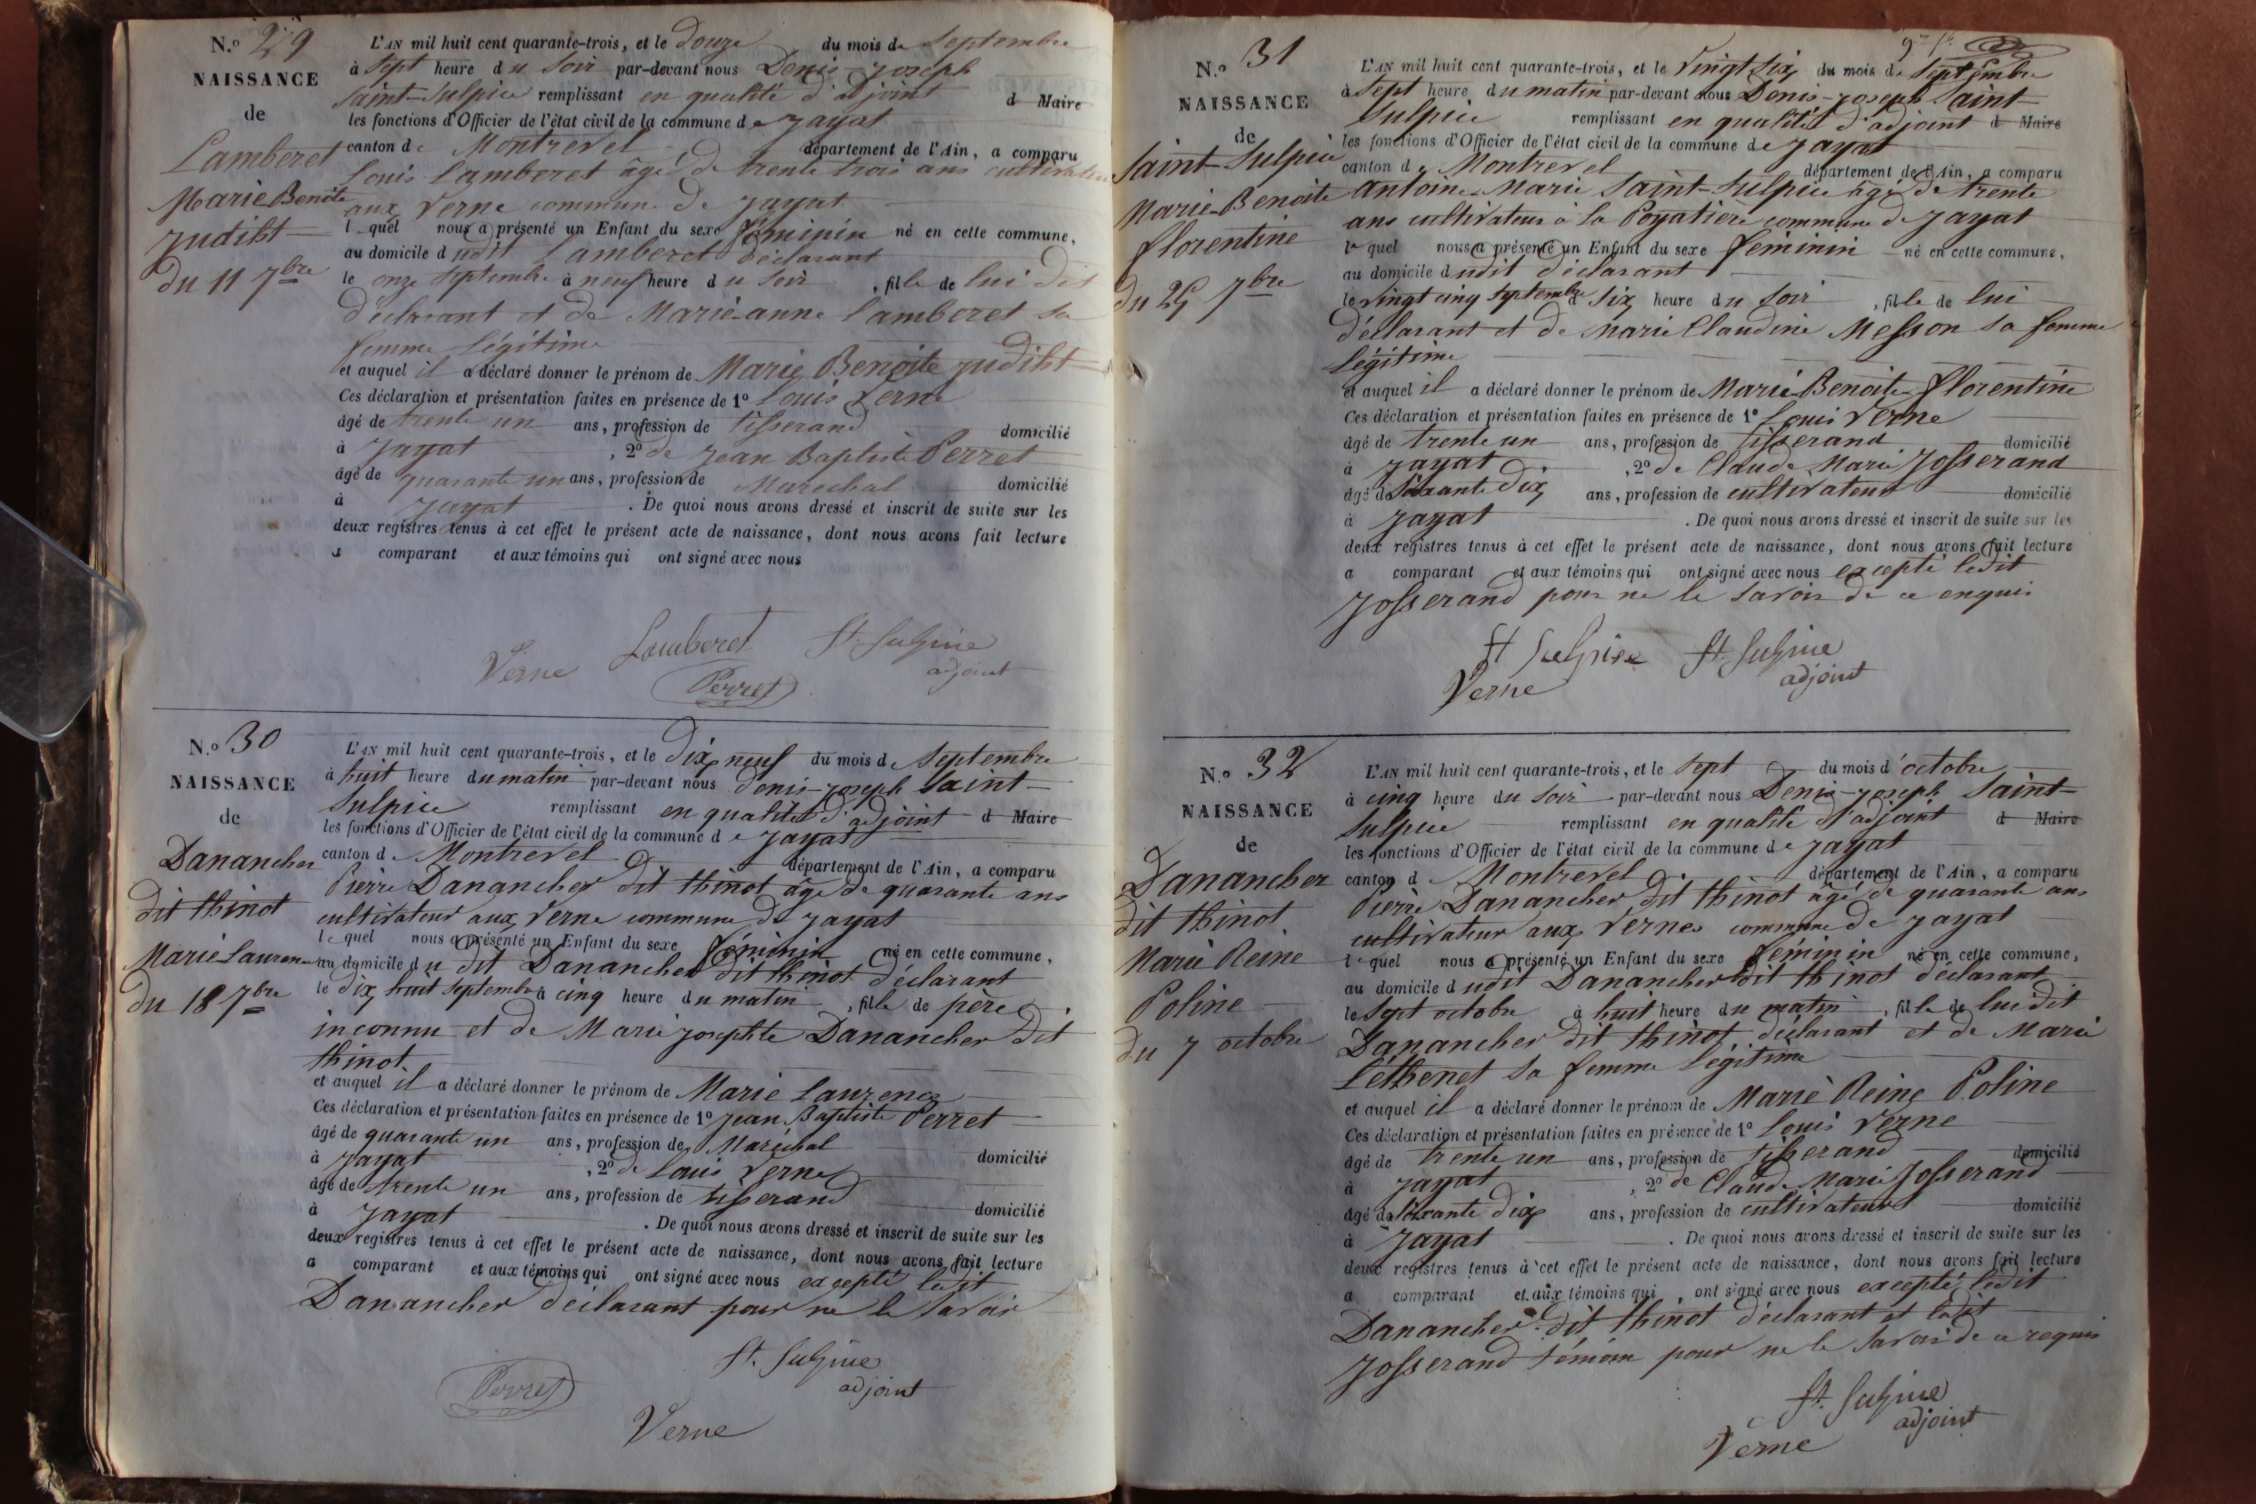 N.º 29
NAISSANCE
de
Lamberet
Marie Benoite
Judiht
du 11 7bre
L'AN mil huit cent quarante-trois, et le douze du mois de Septembre
à sept heure du soir par-devant nous Denis-joseph
saint-Sulpice remplissant en qualité d'adjoint d Maire
les fonctions d'Officier de l'état civil de la commune de jayat
canton de Montrevel département de l'Ain, a comparu
Louis Lamberet âgé de trente trois ans cultivateur
aux Verne commune de jayat
lequel nous a présenté un Enfant du sexe féminin né en cette commune,
au domicile dudit Lamberet déclarant
le onze septembre à neuf heure du soir, fille de lui dit
déclarant et de Marie-anne Lamberet sa
femme légitime
et auquel il a déclaré donner le prénom de Marie Benoite judiht
Ces déclaration et présentation faites en présence de 1º Louis Verne
âgé de trente un ans, profession de tisserand domicilié
à Jayat, 2º de jean Baptiste Perret
âgé de quarante un ans, profession de Maréchal domicilié
à jayat. De quoi nous avons dressé et inscrit de suite sur les
deux registres tenus à cet effet le présent acte de naissance, dont nous avons fait lecture
a comparant et aux témoins qui ont signé avec nous
Verne Lamberet St. Sulpice
Perret adjoint
N.º 30
NAISSANCE
de
Danancher
dit thinot
Marie Laurence
du 18 7bre
L'AN mil huit cent quarante-trois, et le dix neuf du mois de Septembre
à huit heure du matin par-devant nous denis-joseph Saint-
Sulpice remplissant en qualité d'adjoint d Maire
les fonctions d'Officier de l'état civil de la commune de jayat
canton de Montrevel département de l'Ain, a comparu
Pierre Danancher dit thinot âgé de quarante ans
cultivateur aux Verne commune de jayat
lequel nous a présenté un Enfant du sexe féminin né en cette commune,
au domicile du dit Danancher dit thinot déclarant
le dix huit septembre à cinq heure du matin, fille de père
inconnu et de Marie josephte Danancher dit
thinot
et auquel il a déclaré donner le prénom de Marie Laurence
Ces déclaration et présentation faites en présence de 1º jean Baptiste Perret
âgé de quarante un ans, profession de Maréchal
à jayat, 2º de Louis Verne domicilié
âgé de trente un ans, profession de tisserand
à jayat. De quoi nous avons dressé et inscrit de suite sur les domicilié
deux registres tenus à cet effet le présent acte de naissance, dont nous avons fait lecture
a comparant et aux témoins qui ont signé avec nous excepté ledit
Danancher déclarant pour ne le savoir
St. Sulpice
Perret adjoint
Verne
N.º 31
NAISSANCE
de
Saint-Sulpice
Marie-Benoite
florentine
du 25 7bre
L'AN mil huit cent quarante-trois, et le vingt six du mois de Septembre
à sept heure du matin par-devant nous Denis-joseph Saint-
Sulpice remplissant en qualité d'adjoint d Maire
les fonctions d'Officier de l'état civil de la commune de jayat
canton de Montrevel département de l'Ain, a comparu
antoine Marie Saint-Sulpice âgé de trente
ans cultivateur à la Poyatière commune de jayat
lequel nous a présenté un Enfant du sexe féminin né en cette commune,
au domicile dudit déclarant
le vingt cinq septembre à six heure du soir, fille de lui
déclarant et de Marie Claudine Messon sa femme
légitime
et auquel il a déclaré donner le prénom de Marie-Benoite florentine
Ces déclaration et présentation faites en présence de 1º Louis Verne
âgé de trente un ans, profession de tisserand domicilié
à jayat, 2º de Claude Marie Josserand
âgé de soixante dix ans, profession de cultivateur domicilié
à jayat. De quoi nous avons dressé et inscrit de suite sur les
deux registres tenus à cet effet le présent acte de naissance, dont nous avons fait lecture
a comparant et aux témoins qui ont signé avec nous excepté ledit
Josserand pour ne le savoir de ce enquis
St Sulpice St. Sulpice
Verne adjoint
N.º 32
NAISSANCE
de
Danancher
dit thinot
Marie Reine
Poline
du 7 octobre
L'AN mil huit cent quarante-trois, et le sept du mois d'octobre
à cinq heure du soir par-devant nous Denis-joseph Saint-
Sulpice remplissant en qualité d'adjoint d Maire
les fonctions d'Officier de l'état civil de la commune de jayat
canton de Montrevel département de l'Ain, a comparu
Pierre Danancher dit thinot âgé de quarante ans
cultivateur aux Vernes commune de jayat
lequel nous a présenté un Enfant du sexe féminin né en cette commune,
au domicile dudit Danancher dit thinot déclarant
le sept octobre à huit heure du matin, fille de lui dit
Danancher dit thinot déclarant et de Marie
Léthenet sa femme légitime
et auquel il a déclaré donner le prénom de Marie Reine Poline
Ces déclaration et présentation faites en présence de 1º Louis Verne
âgé de trente un ans, profession de tisserand domicilié
à jayat, 2º de Claude Marie Josserand
âgé de soixante dix ans, profession de cultivateur domicilié
à jayat. De quoi nous avons dressé et inscrit de suite sur les
deux registres tenus à cet effet le présent acte de naissance, dont nous avons fait lecture
a comparant et aux témoins qui ont signé avec nous excepté ledit
Danancher dit thinot déclarant et ledit
Josserand témoin pour ne le savoir de ce requis
St. Sulpice
Verne adjoint